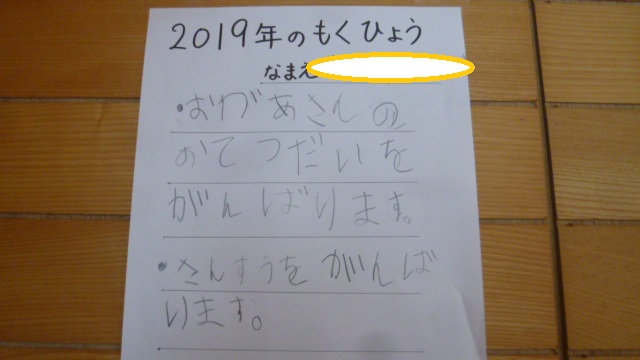 2019年のもくひょう
なまえ
・おがあさんの
おてつだいを
がんばります。
・さんすうをがんば
ります。